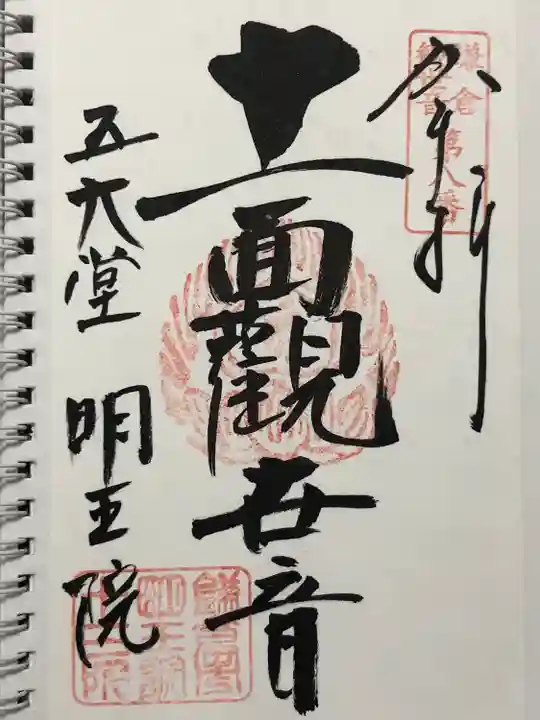 奉拝
鎌倉
観世音
第八番
十一面觀世音
五大堂 明王院